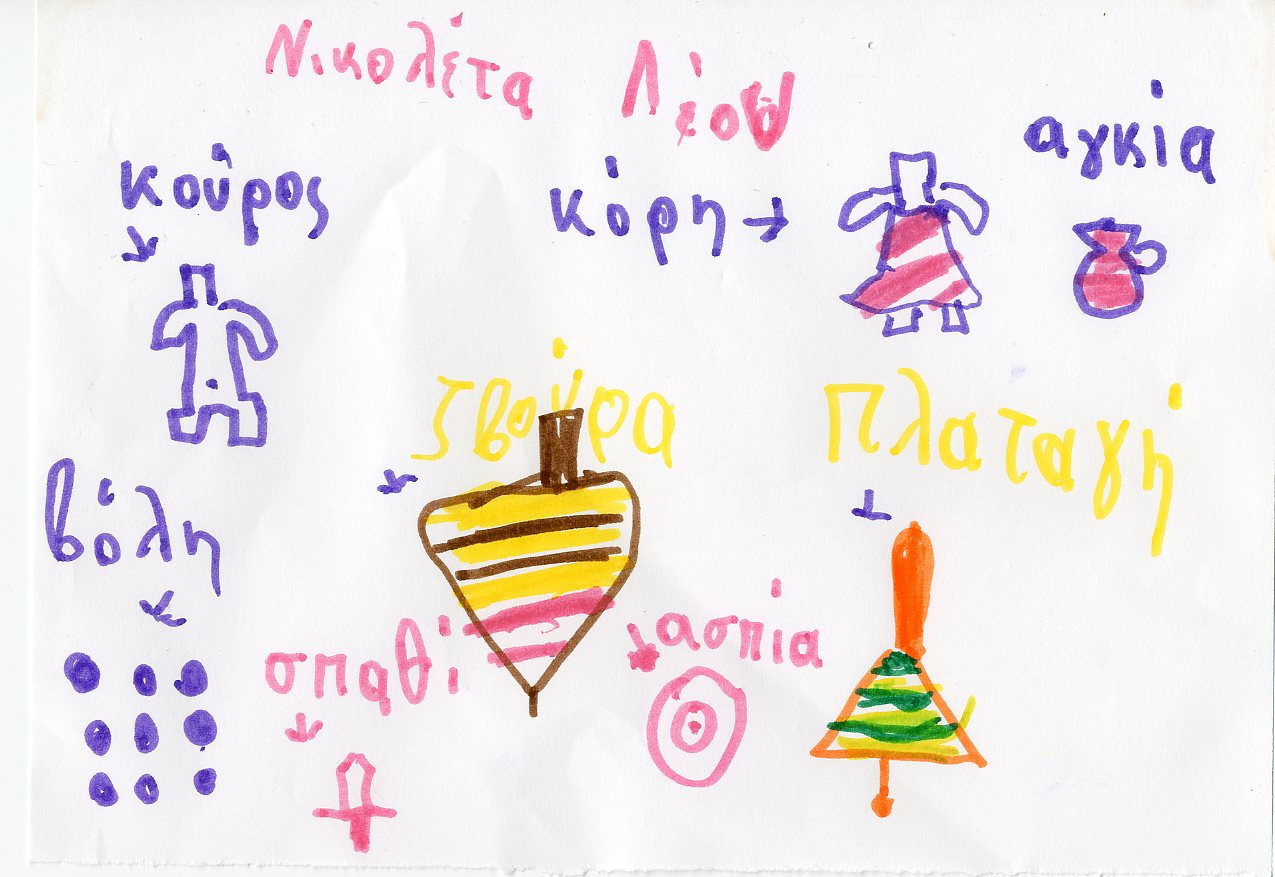 Νικολέτα Λέου
αγκία
κούρος
κόρη
σβούρα
πλαταγή
βόλη
σπαθί
ασπία